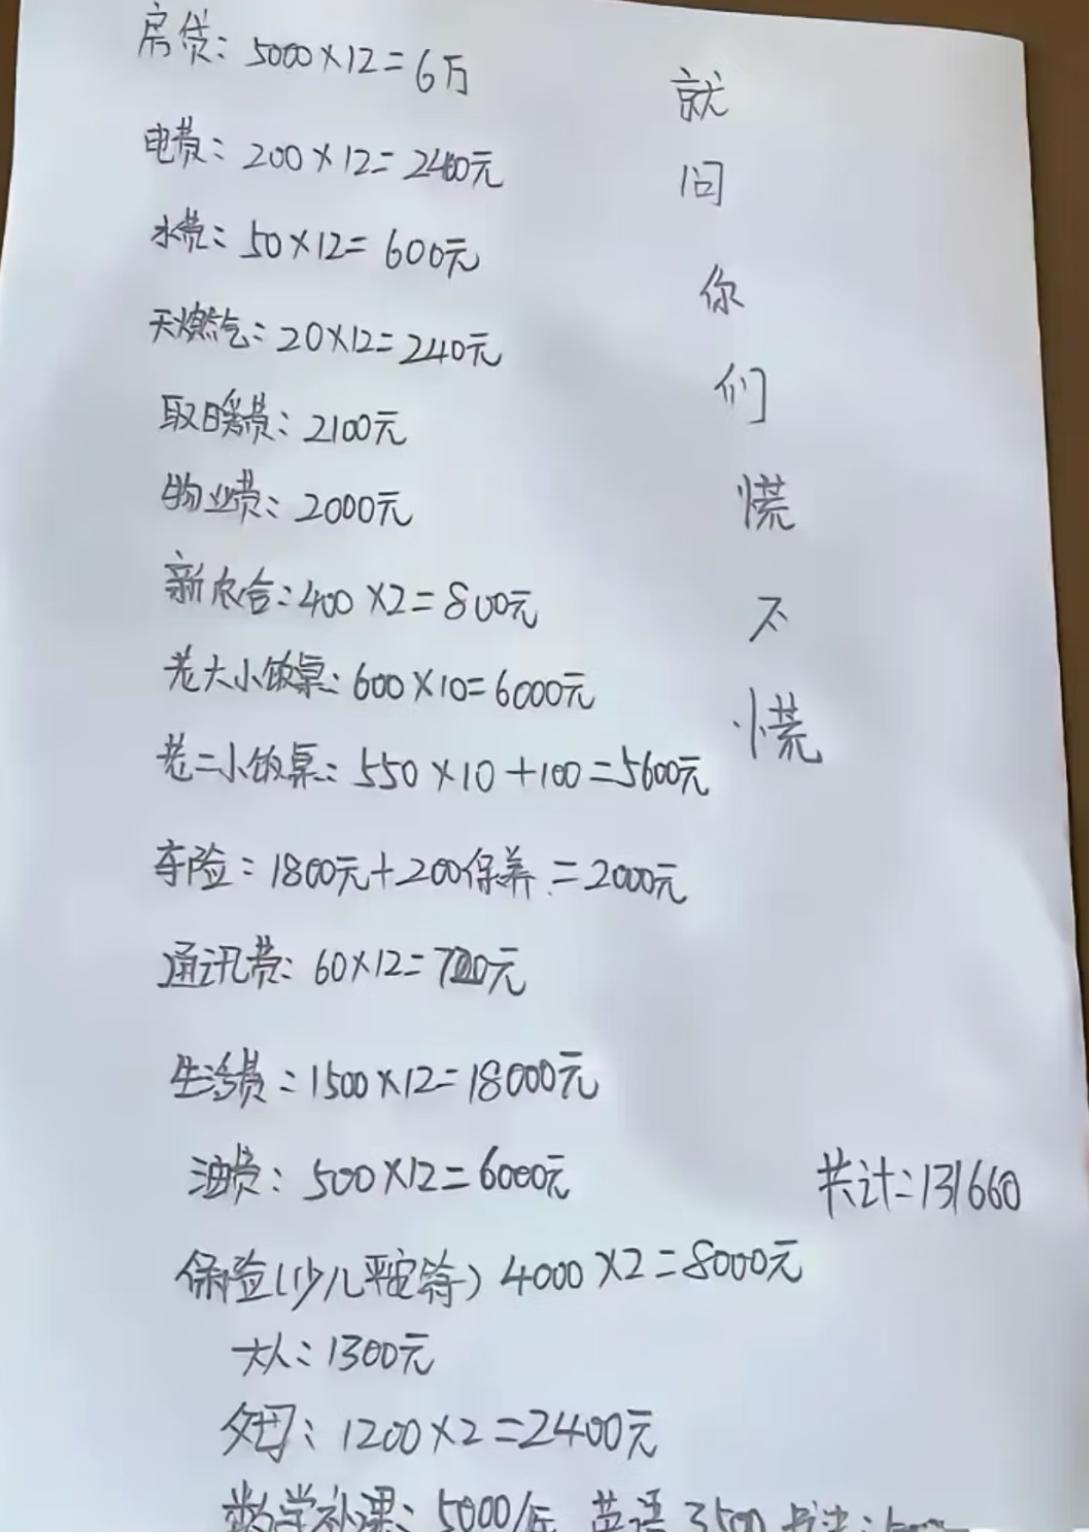 房贷：5000×12=6万
电费：200×12=2400元
水费：50×12=600元
天燃气：20×12=240元
取暖费：2100元
物业费：2000元
新农合：400×2=800元
老大小饭桌：600×10=6000元
老二小饭桌：550×10+100=5600元
车险：1800元+200保养=2000元
通讯费：60×12=720元
生活费：1500×12=18000元
油费：500×12=6000元
保险(少儿平安等) 4000×2=8000元
大人：1300元
父母：1200×2=2400元
数学补课：5000/年 英语 3500
就
问
你
们
慌
不
慌
共计：131660